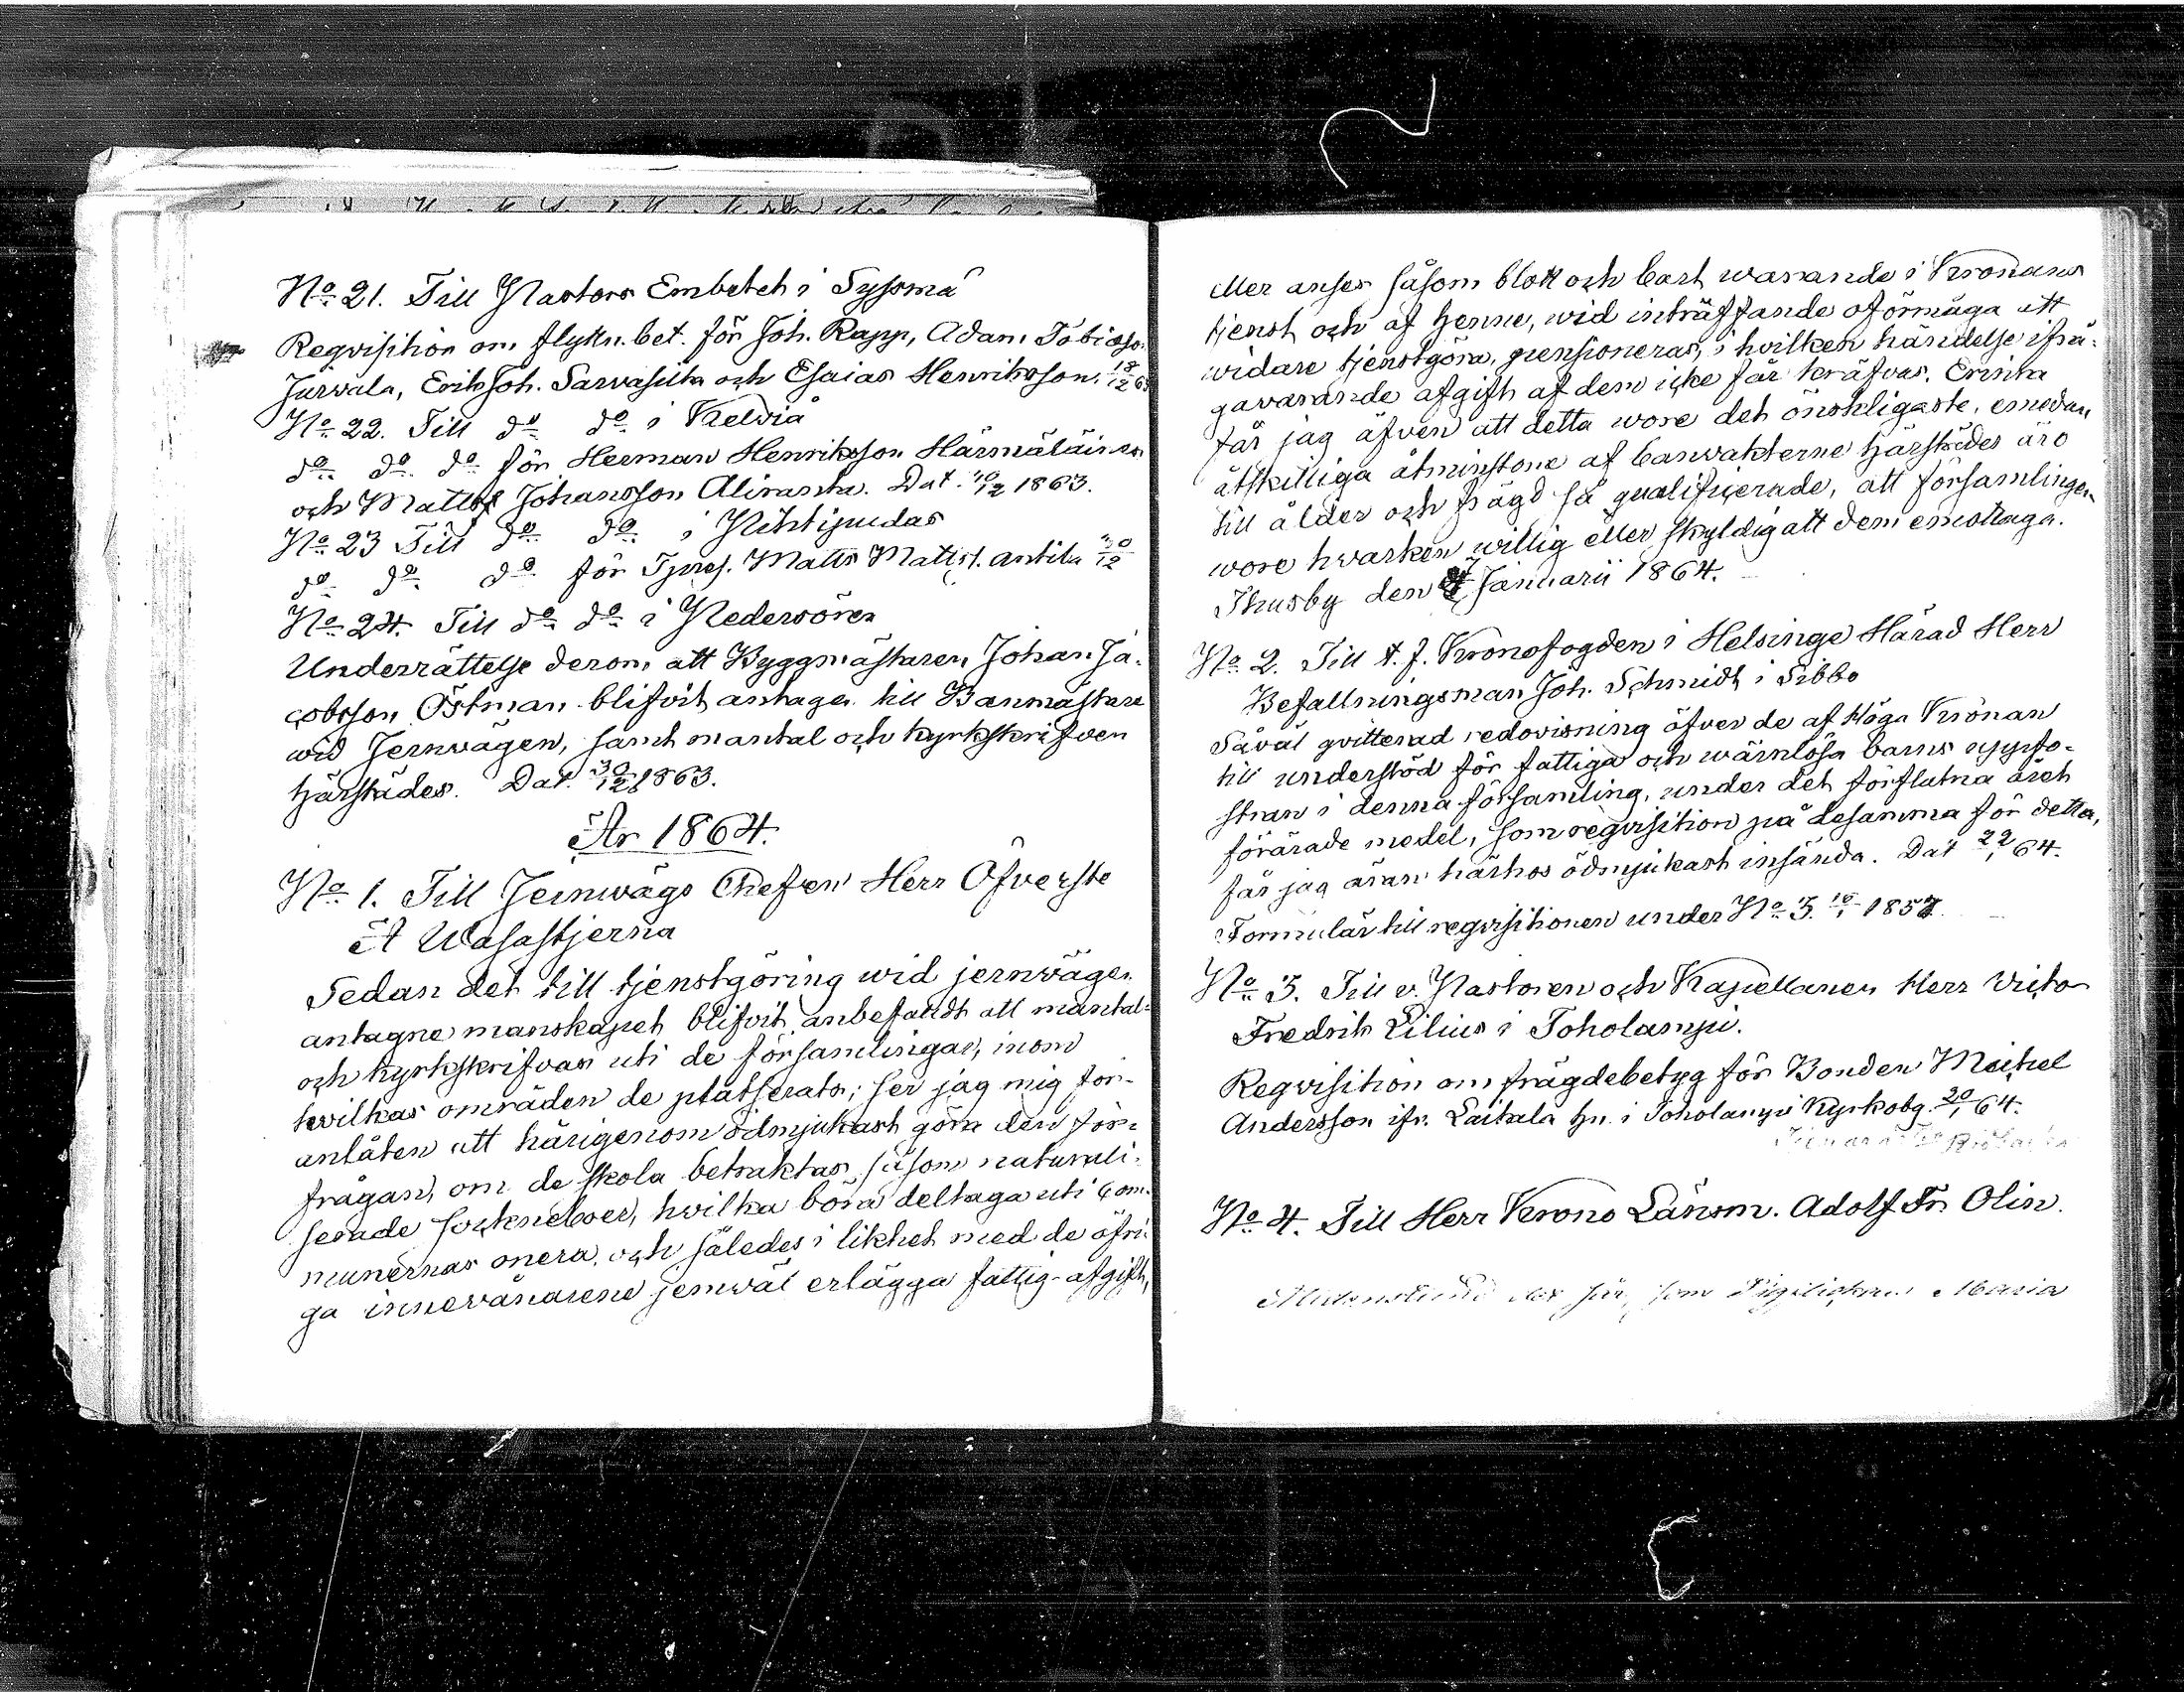 No 21. Till Pastors Embetet i Sysmä
Reqvisition om flyttn. bet. för Joh. Rapp, Adam Tobiasso.
Jurvala, Erik Joh. Sarvasilta och Esaias Henriksson. 18/12 63
No 22. Till do do i Kelviå
do do do för Herman Henriksson Härmäläinen
och Matts Johansson Aliranta. Dat. 10/12 1863.
No 23 Till do do i Pihtipudas
do do do för Matts Mattss. Antila 30/12
No 24. Till do do i Pedersöre
Underrättelse derom att Byggmästaren Johan Ja-
cobsson Östman blifvit antagen till Banmästare
wid Jernvägen, samt mantal och kyrkskrifven
härstädes. Dat. 30/12 1863.
År 1864.
No 1. Till Jernvägs Chefen Herr Öfverste
A Wasastjerna
Sedan det till tjenstgöring wid jernvägen
antagne manskapet blifvit anbefaldt att mantal-
och kyrkskrifvas uti de församlingar, inom
hvilkas områden de platserats; ser jag mig för-
anlåten att härigenom ödmjukast göra den för-
frågan, om de skola betraktas såsom naturali-
serade socknebor, hvilka böra deltaga uti com-
munernas onera, och således i likhet med de öfri-
ga innevånarene jemväl erlägga fattig-afgift,
eller anses såsom blott och bart warande i Kronans
tjenst och af henne, wid inträffande oförmåga att
widare tjenstgöra, pensioneras, i hvilken händelse ifrå-
gavarande afgift af dem icke får kräfvas. Erinra
får jag äfven att detta wore det önskligaste, emedan
åtskilliga åtminstone af banvakterne härstädes äro
till ålder och frägd så qualificerade, att församlingen
wore hvarken willig eller skyldig att dem emottaga.
Thusby den 7 Januarii 1864.
No 2. Till t. f. Kronofogden i Helsinge Härad Herr
Befallningsman Joh. Schmidt i Sibbo
Såväl qvitterad redovisning öfver de af Höga Kronan
till understöd för fattiga och wärnlösa barns uppfo-
stran i denna församling, under det förflutna året
förärade medel, som reqvisition på desamma för detta,
får jag äran härhos ödmjukast insända. Dat 22/1 64.
Formulär till reqvisitionen under No 3. 18/1 1857
No 3. Till v. Pastoren och Kapellanen Herr Victor
Fredrik Lilius i Toholampi.
Reqvisition om frägdebetyg för Bonden Michel
Andersson ifr. Laitala hn. i Toholampi Kyrkoby. 20/1 64.
No 4. Till Herr Krono Länsm. Adolf Fr. Olin.
som Maria